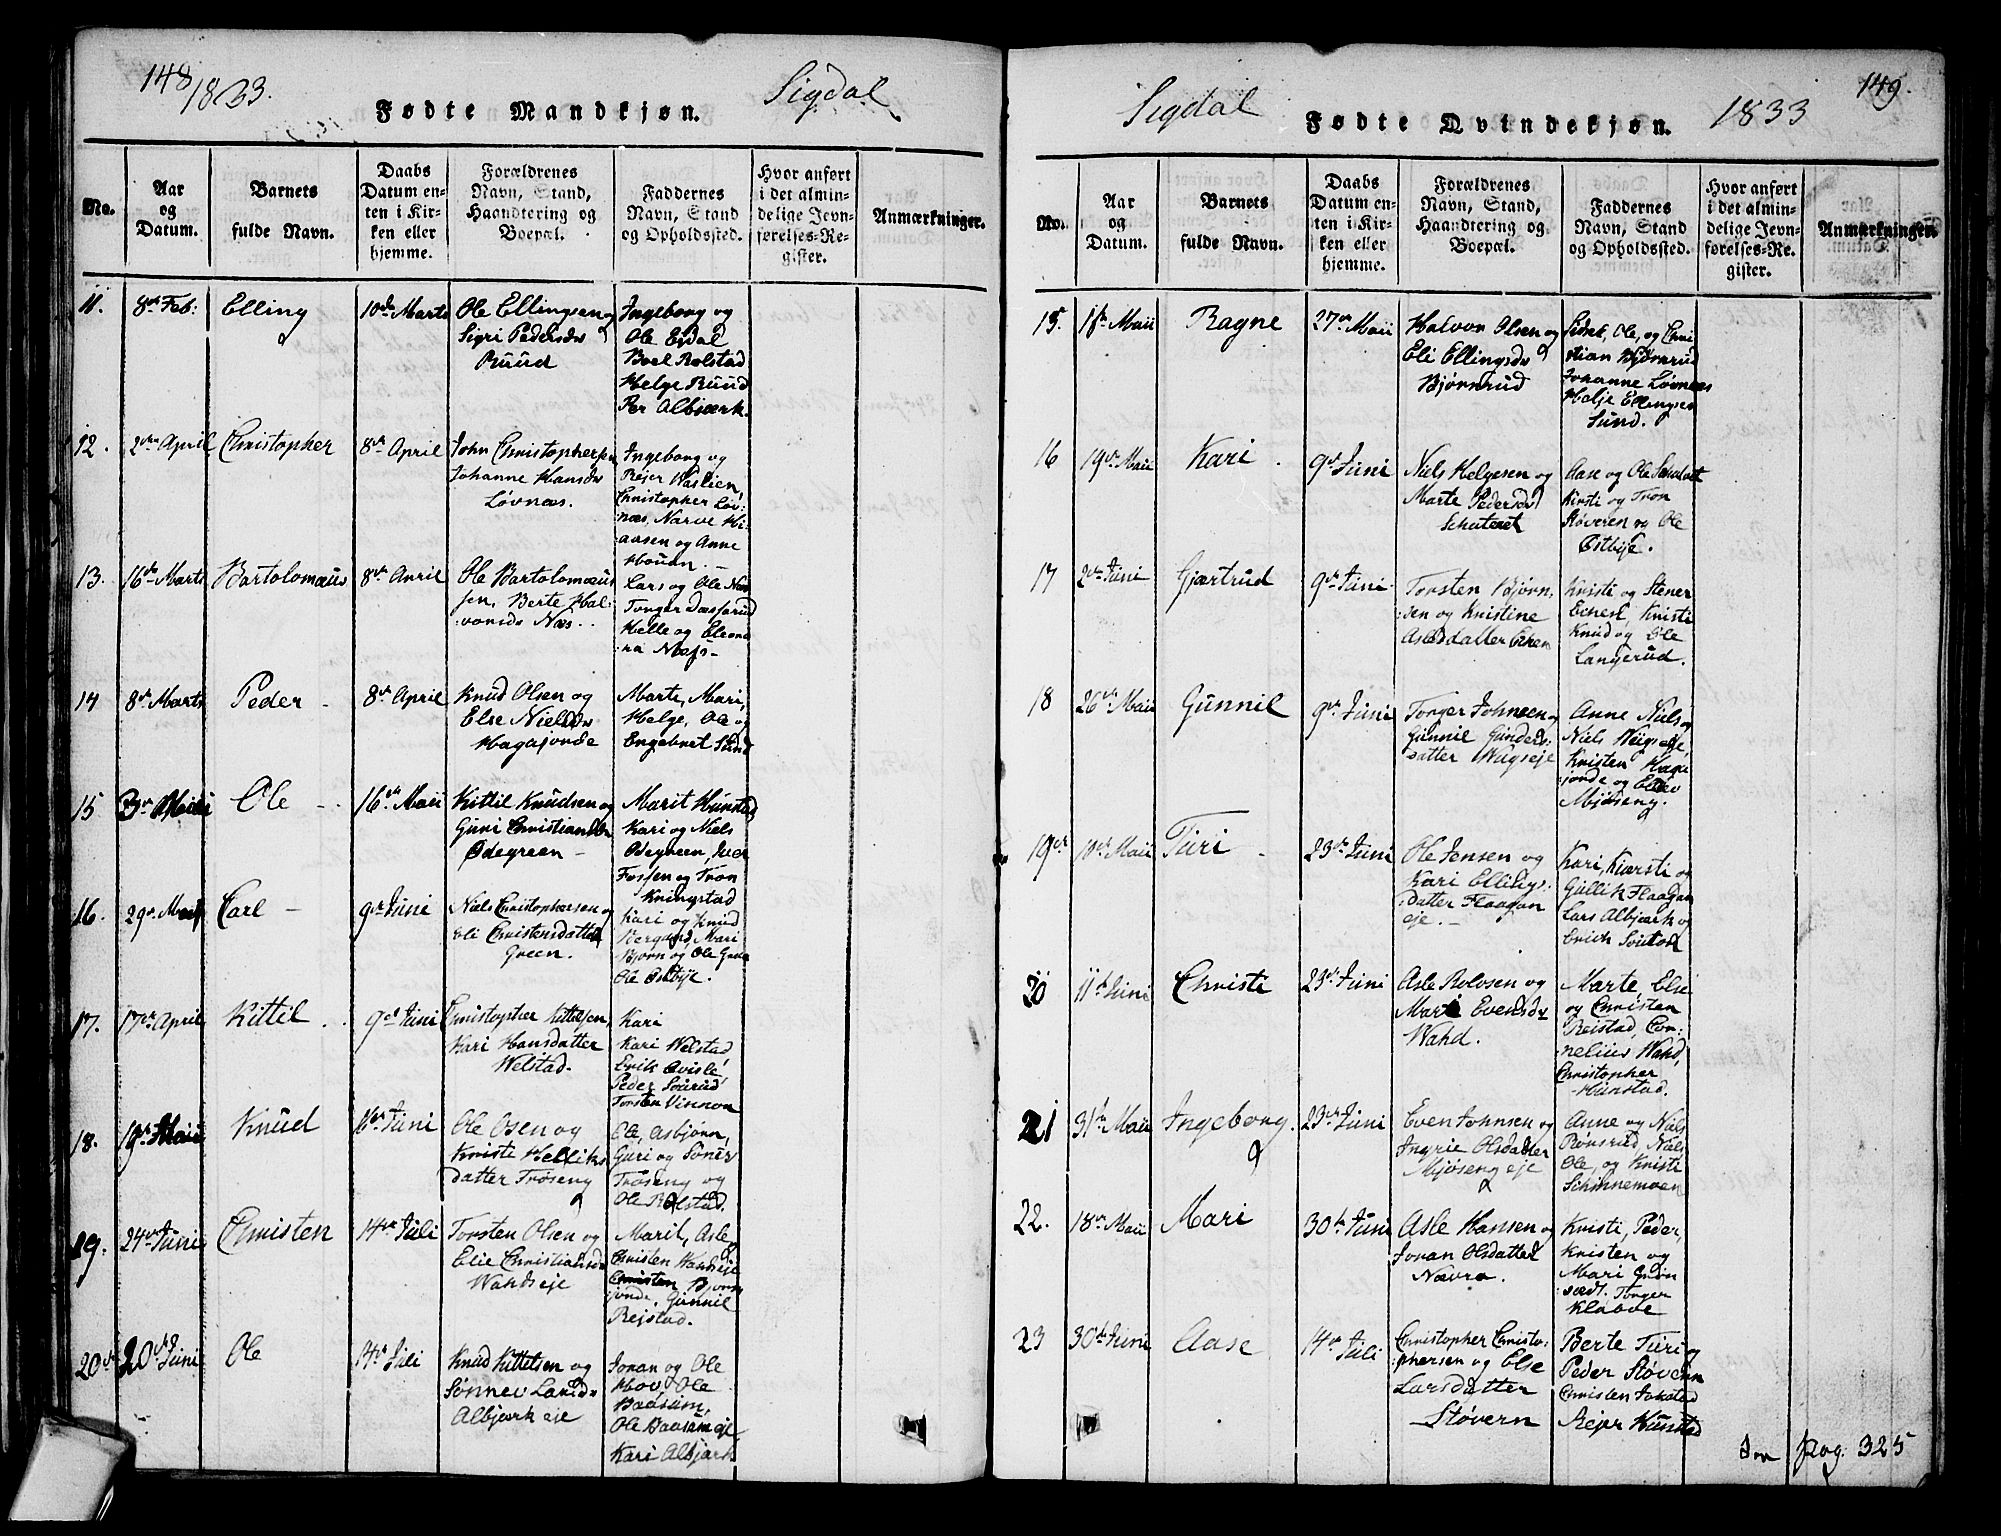 148
1833.
Fødte Mandkjøn.
Sigdal
No.
Aar
og
Datum.
Barnets
fulde Navn.
Daabs
Datum en-
ten i Kir-
ken eller
hjemme.
Forældrenes
Navn, Stand,
Haandtering og
Boepæl.
Faddernes
Navn, Stand
og Opholdssted.
Hvor anført
i det almin-
delige Jevn-
førelses-Re-
gister.
Anmærkninger.
11.
8de Feb:
Elling
10de Marts
Ole Ellingsen og
Sigri Pedersdr
Ruud
Ingeborg og
Ole Esdal
Boel Rolstad
Helge Ruud
Per Albjerk.
12.
2den April
Christopher
8de April
John Christophersen
Johanne Hansdr
Løvnæs.
Ingeborg og
Rejer Waslien,
Christopher Løv:
næs, Narve Hi-
aasen og Anne
Houan.
13.
16de Marts
Bartolomæus
8de April
Ole Bartolomæus
sen, Berte Hal-
vorsdr Næs.
Lars og Ole Næs
Torger Dæsserud
Helle og Eleono
ra Næss-
14
8de Marts
Peder -
8de April
Knud Olsen og
Else Nielsdr
Hagajorde
Marte, Mari,
Helge, Ole og
Engebret Sund
15
3de Maii
Ole -
16de Maii
Kittil Knudsen og
Guri Christiansdr
Ødegreen -
Marit Hunstad
Kari og Niels
Ødegreen, Iver
Fossen og Tron
Kringstad
16.
29de Marts
Carl -
9de Juni
Niels Christophersen og
Eli Christensdatter
Green.
Kari og Knud
Bergand, Mari
Bjorn og Ole Green
Ole Østbye.
17.
17de April
Kittil
9de Juni
Christopher Kittilsen,
Kari Hansdatter
Welstad.
Kari
Kari Welstad
Erik Qvisle
Peder Sourud
Torsten Vinnon
18.
19de Maii
Knud
16de Juni
Ole Osen og
Kristi Helliks
datter Trøseng
Ole, Asbjørn,
Guri og Sønev
Trøseng og
Ole Rolstad.
19.
24de Juni
Christen
14de Juli
Torsten Olsen og
Elie Christiansdr
Wahdseje
Marit, Asle,
Christen Wahdseje
Christen Bjorn
jonde, Gunnil
Rejstad.
20de
20de Juni
Ole
14de Juli
Knud Kittelsen og
Sønnev Larsdr
Albjærk eje
Joran og Ole
Hov, Ole
Baasum,
Ole Baasum eje
Kari Albjærk
149.
Sigdal
Fødte Qvindekjøn.
1833
No.
Aar
og
Datum.
Barnets
fulde Navn.
Daabs
Datum en-
ten i Kir-
ken eller
hjemme.
Forældrenes
Navn, Stand,
Haandtering og
Boepæl.
Faddernes
Navn, Stand
og Opholdssted.
Hvor anført
i det almin-
delige Jevn-
førelses-Re-
gister.
Anmærkninger.
15.
Maii
Ragne
27de Maii
Halvor Olsen og
Eli Ellingsdr
Bjørnrud
Sidsel, Ole, og Chri
stian Bjørnrud
Johanne Løvnæs
Helje Ellingsen
Sund.
16
19de Maii
Kari
9de Juni
Niels Helgesen og
Marte Pedersdr
Schateret
Aase og Ole
Kirsti og Tron
Støveren og Ole
Østbye.
17
2den Juni
Gjærtrud
9de Juni
Torsten Bjørn,
sen og Kristine
Asledatter Ekern
Kristi og Stener
Echert, Kristi
Knud og Ole
Langerud.
18
26de Maii
Gunnil
9de Juni
Torger Johnsen og
Gunnil Gunders:
datter Wugseje
Anne Niels og
Niels Wugseje
Kristen Haga
jorde og Ellev
Mjøseng.
19de
10de Maii
Turi
23de Juni
Ole Jensen og
Kari Ellings
datter Flaagan
eje. -
Kari, Kiærsti og
Gullik Flaagan
Lars Albjærk og
Erich
20
11te Juni
Christi
23de Juni
Asle Rolosen og
Mari Evensdr
Wahd.
Marte, Else
og Christen
Reistad, Cor:
nelius Wahd,
Christopher
Hunstad.
21
31te Maii
Ingeborg.
23de Juni
Even Johnsen og
Ingrie Olsdatter
Mjøseng eje
Anne og Niels
Ronsrud, Niels
Ole, og Kristi
Schinnemoen
22.
18de Maii
Mari
30te Juni
Asle Hansen og
Joran Olsdatter
Nævra.
Kristi, Peder,
Kristen og
Mari Grøn
sædt. Torger
Klaboe
23
30te Juni
Aase
14de Juli
Christopher Christo:
phersen og Else
Larsdatter
Støvern
Berte Turi og
Peder Støvern
Christen Jokstad
Rejer Hunstad
pag. 325